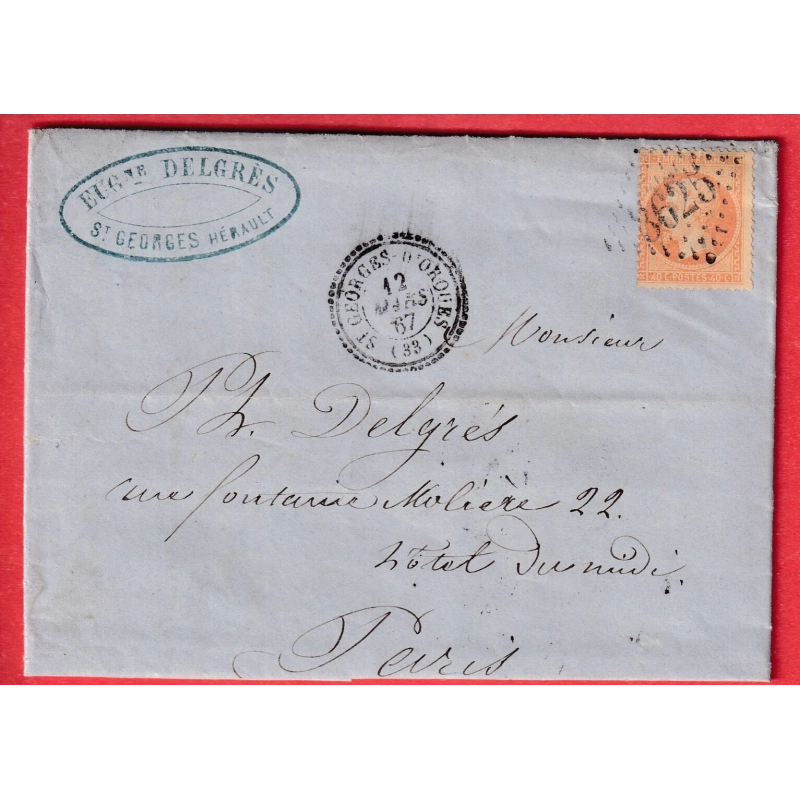 EUGNE DELGRÈS
ST GEORGES HÉRAULT
3625
40 C POSTES 40 C
ST GEORGES-D'ORQUES
12
MARS
67
(33)
Monsieur
Ph. Delgrés
rue fontaine Molière 22.
hôtel Du midi
Paris